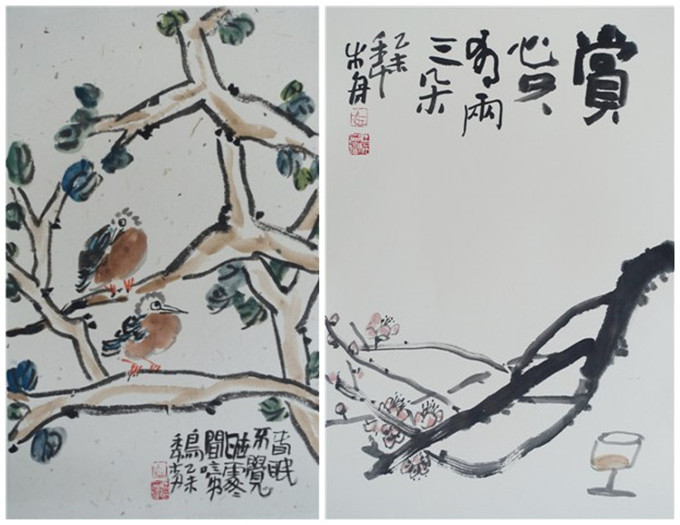 春眠
不覺
曉處處
聞啼
鳥乙未
賞
心只
有兩
三朵
乙未
木舟